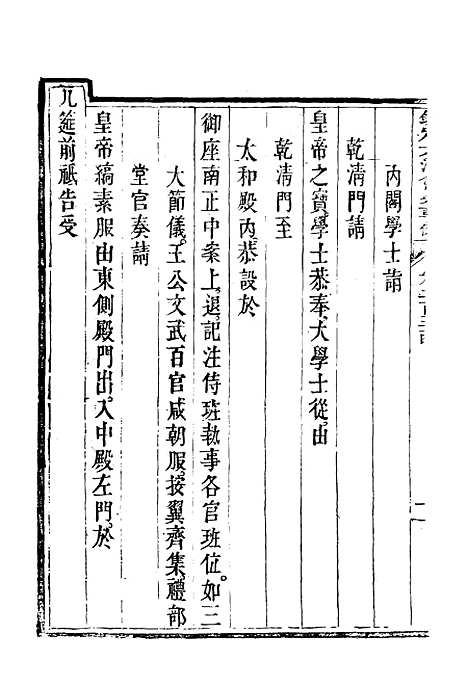 內閣學士詣
乾清門請
皇帝之寶學士恭奉大學士從由
乾清門至
太和殿內恭設於
御座南正中案上退記注侍班執事各官班位如三
大節儀王公文武百官咸朝服按翼齊集禮部
堂官奏請
皇帝縞素服由東側殿門出入中殿左門於
几筵前祗告受